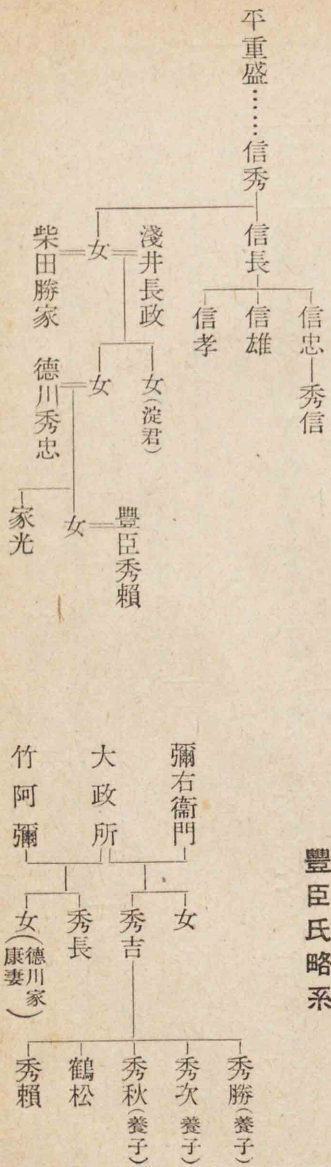 豐臣氏略系
平重盛……信秀
信長
信忠―秀信
信雄
信孝
淺井長政
女
柴田勝家
女(淀君)
女
德川秀忠
豐臣秀賴
女
家光
彌右衞門
大政所
竹阿彌
女
秀吉
秀長
女(德川家康妻)
秀勝(養子)
秀次(養子)
秀秋(養子)
鶴松
秀賴